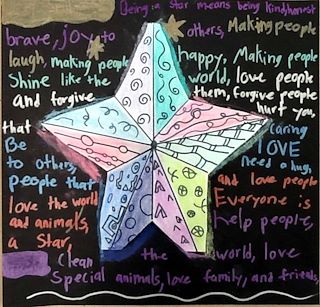 Being a star means being kind, honest
brave, joy to others, Making people
laugh, making people happy, Making people
Shine like the world, love people
and forgive them, forgive people
that hurt you,
Be caring
to others, LOVE
people that need a hug,
love the world and love people
and animals, Everyone is
a star, help people,
Clean the world, love
Special animals, love family, and friends,